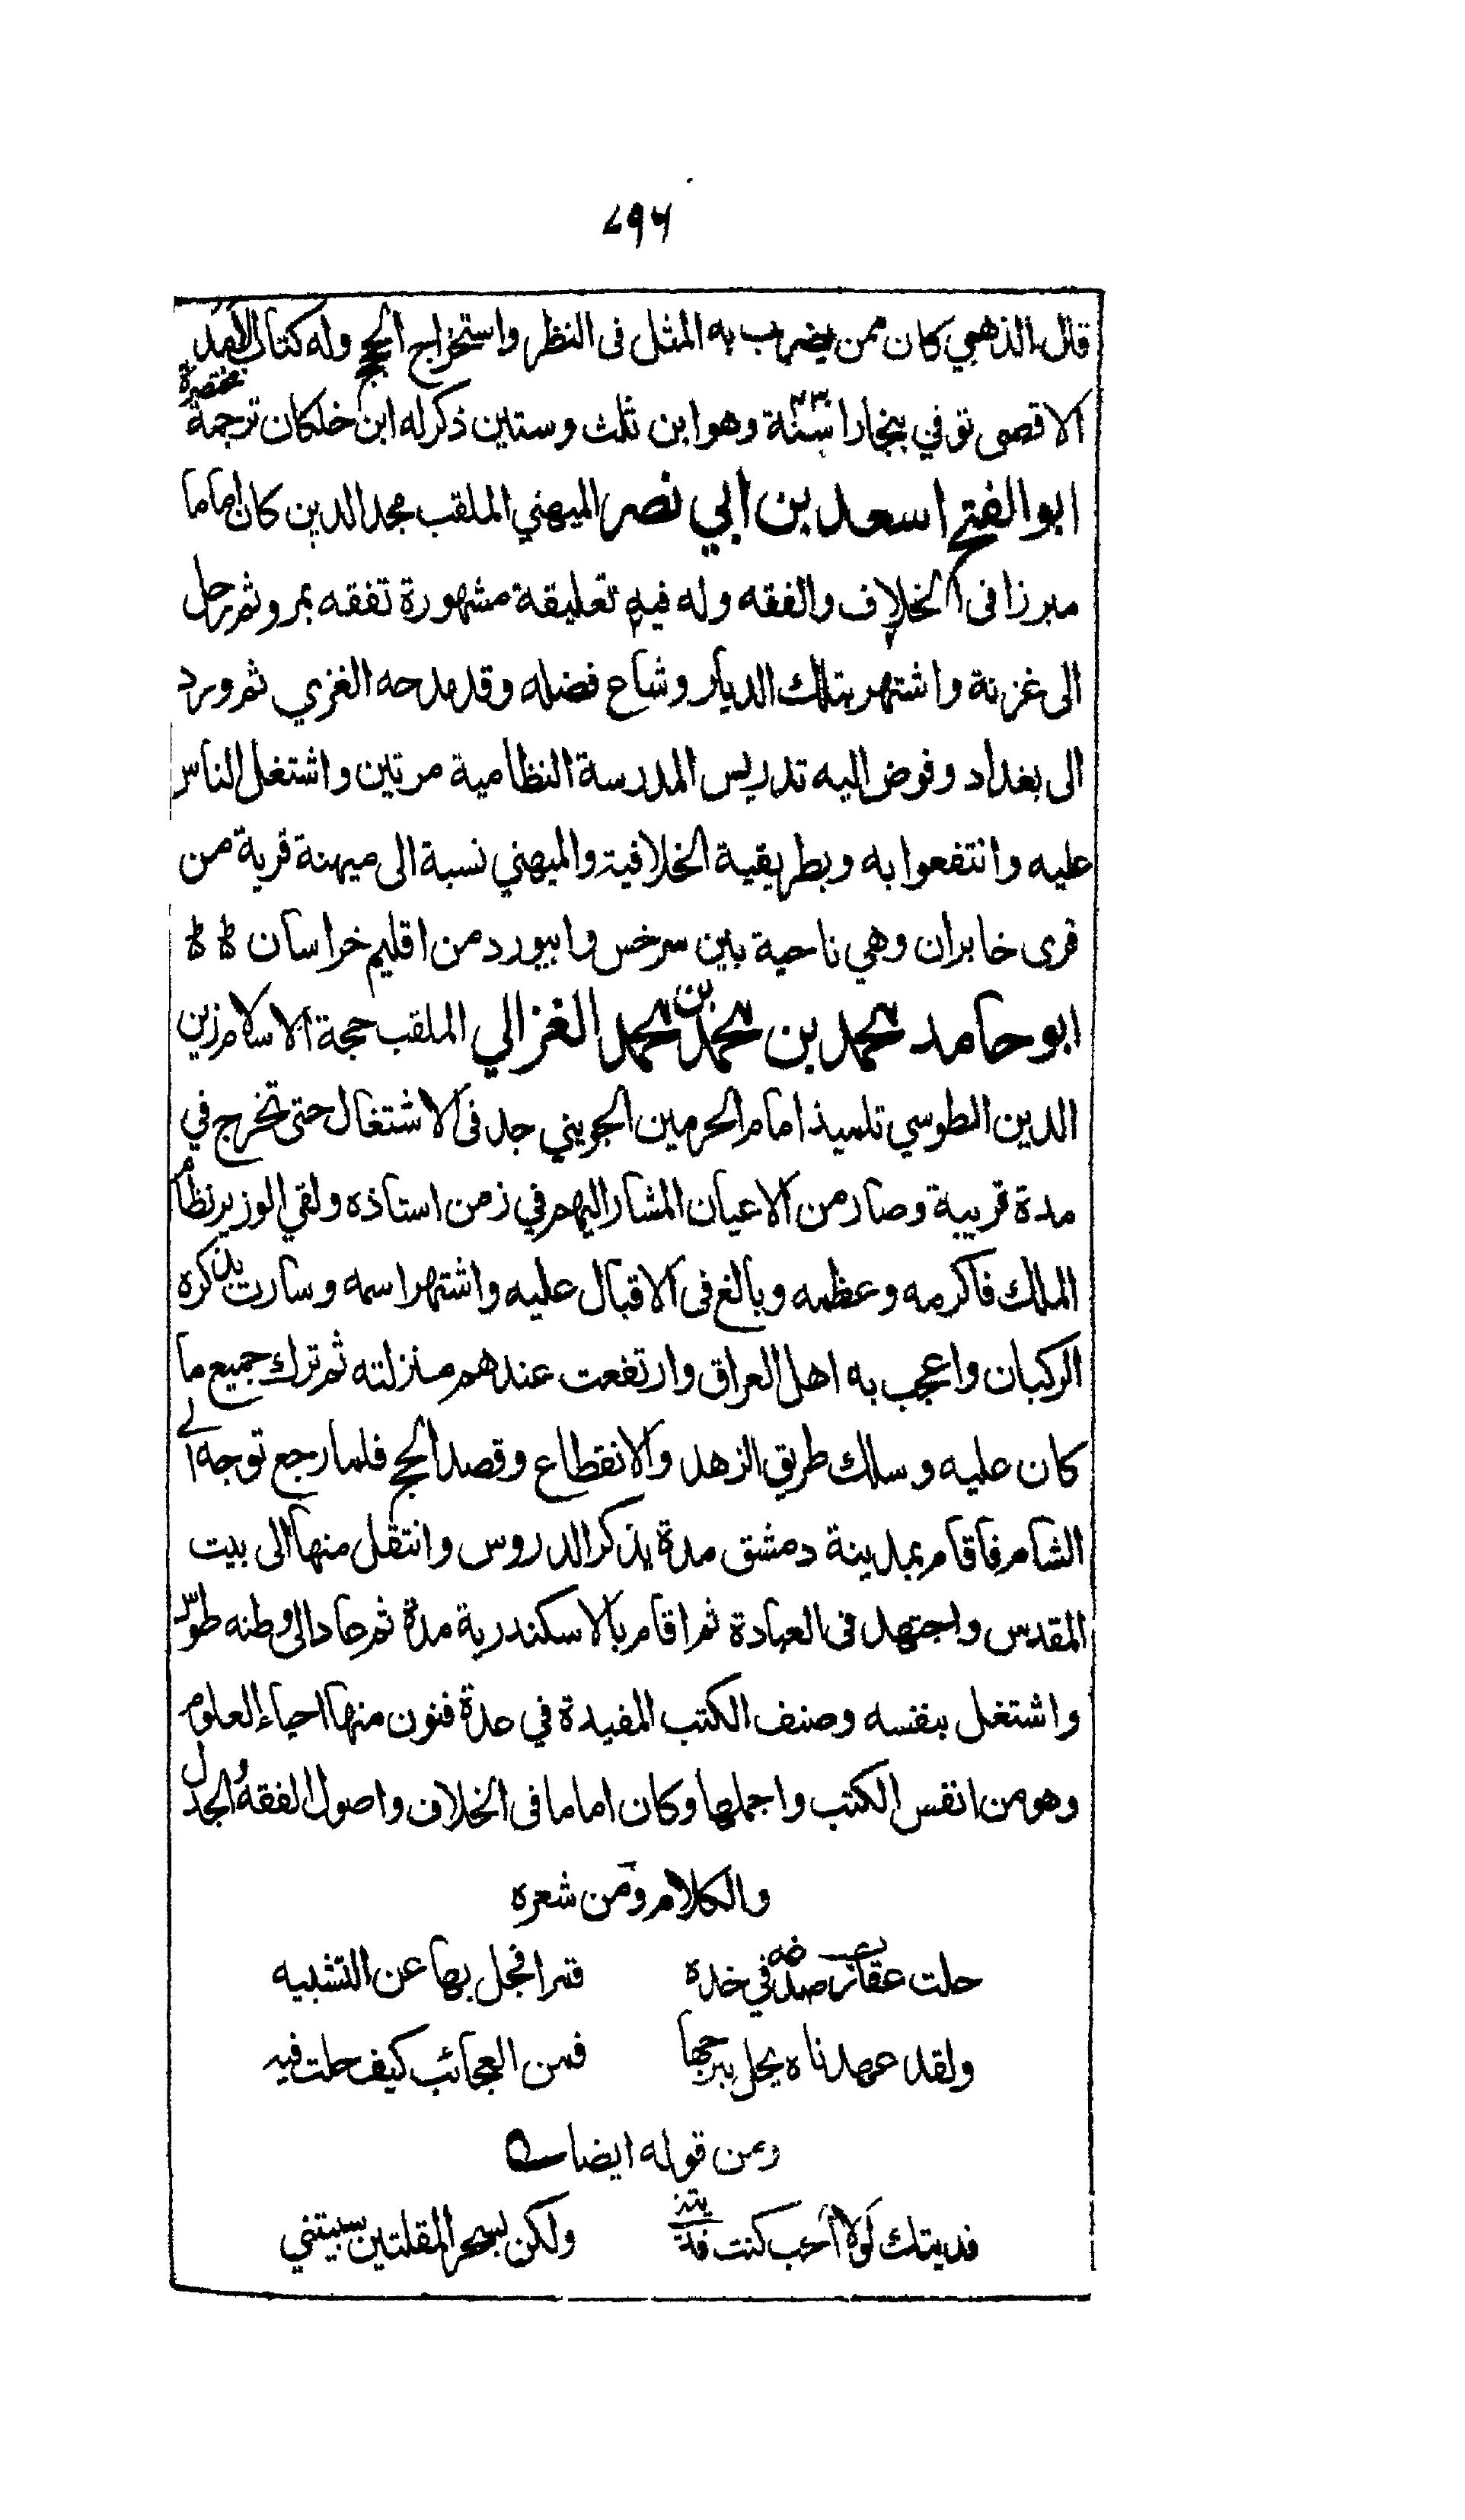 ٧٩٦
قال الذهبي كان ممن يضرب به المثل فى النظر واستخراج الحجج وله كتاب الامد
الاقصى توفي ببخارا سنة وهو ابن ثلث وستين ذكر له ابن خلكان ترجمة مختصرة
ابو الفتح اسعد بن ابي نصر الميهني الملقب مجد الدين كان اماما
مبرزا فى الخلاف والفقه وله فيه تعليقة مشهورة تفقه بمرو ثم رحل
الى غزنة واشتهر بتلك الديار وشاع فضله وقد مدحه الغزي ثم ورد
الى بغداد وفوض اليه تدريس المدرسة النظامية مرتين واشتغل الناس
عليه وانتفعوا به وبطريقية الخلافية والميهني نسبة الى ميهنة قرية من
قرى خابران وهي ناحية بين سرخس وابيورد من اقليم خراسان
ابو حامد محمد بن محمد بن محمد الغزالي الملقب حجة الاسلام زين
الدين الطوسي تلميذ امام الحرمين الجويني جد فى الاشتغال حتى تخرج في
مدة قريبة وصار من الاعيان المشار اليهم في زمن استاذه ولقي الوزير نظام
الملك فاكرمه وعظمه وبالغ فى الاقبال عليه واشتهر اسمه وسارت بذكره
الركبان واعجب به اهل العراق وارتفعت عندهم منزلته ثم ترك جميع ما
كان عليه وسلك طريق الزهد والانقطاع وقصد الحج فلما رجع توجه الى
الشام فاقام بمدينة دمشق مدة يذكر الدروس وانتقل منها الى بيت
المقدس واجتهد فى العبادة ثم اقام بالاسكندرية مدة ثم عاد الى وطنه طوس
واشتغل بنفسه وصنف الكتب المفيدة في عدة فنون منها احياء العلوم
وهو من انفس الكتب واجملها وكان اماما فى الخلاف واصول الفقه والجدل
والكلام ومن شعره
حلت عقارب صدغه في خده قمرا فجل بها عن التشبيه
ولقد عهدناه يحل ببرجها فمن العجائب كيف حلت فيه
ومن قوله ايضا
فديتك لولا الحب كنت فديتنى ولكن بسحر المقلتين سبيتني